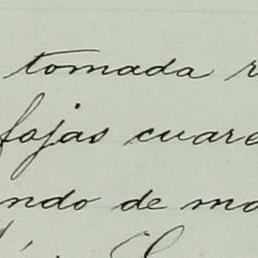 tomada r
fojas cuare
ndo de ma